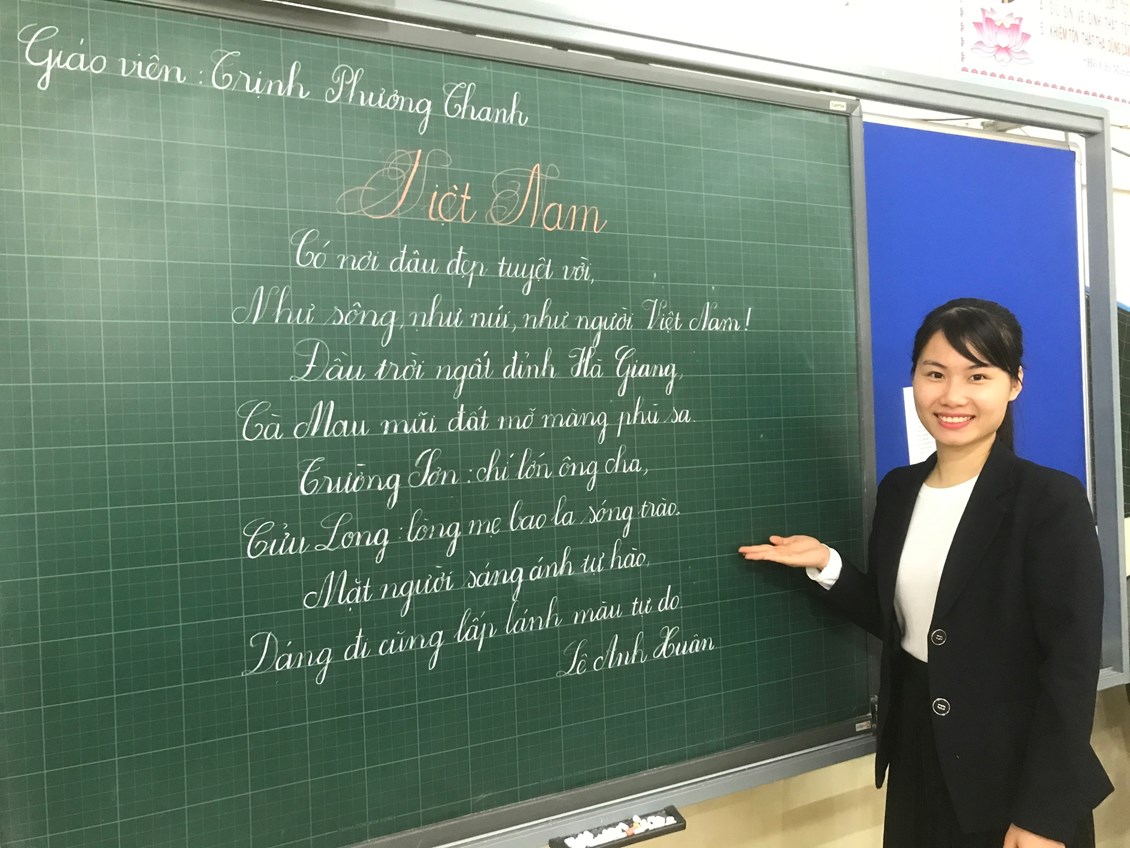 Giáo viên : Trịnh Phương Thanh
Việt Nam
Có nơi đâu đẹp tuyệt vời,
Như sông, như núi, như người Việt Nam!
Đầu trời ngất đỉnh Hà Giang,
Cà Mau mũi đất mỡ màng phù sa.
Trường Sơn : chí lớn ông cha,
Cửu Long : lòng mẹ bao la sóng trào.
Mặt người sáng ánh tự hào,
Dáng đi cũng lấp lánh màu tự do
Lê Anh Xuân
KHIÊM TỐN THẬT THÀ DŨNG CẢM